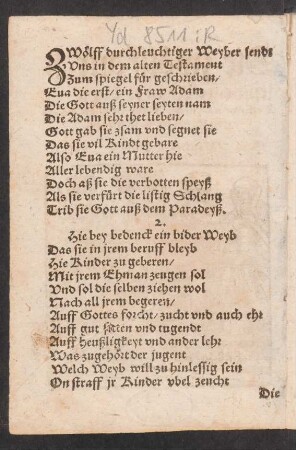 Yd 8511:R
ZWölff durchleuchtiger Weyber sendt
Vns in dem alten Testament
Zum spiegel für geschrieben/
Eua die erst/ ein Fraw Adam
Die Gott auß seyner seyten nam
Die Adam sehr thet lieben/
Gott gab sie zsam vnd segnet sie
Das sie vil Kindt gebare
Also Eua ein Mutter hie
Aller lebendig ware
Doch aß sie die verbotten speyß
Als sie verfürt die listig Schlang
Trib sie Gott auß dem Paradeyß.
2.
Hie bey bedenck ein bider Weyb
Das sie in jrem beruff bleyb
Hie Kinder zu geberen/
Mit jrem Ehman zeugen sol
Vnd sol die selben ziehen wol
Nach all jrem begeren/
Auff Gottes forcht/ zucht vnd auch ehr
Auff gut sitten vnd tugendt
Auff heußligkeyt vnd ander lehr
Was zugehört der jugent
Welch Weyb will zu hinlessig sein
On straff jr Kinder vbel zeucht
Die